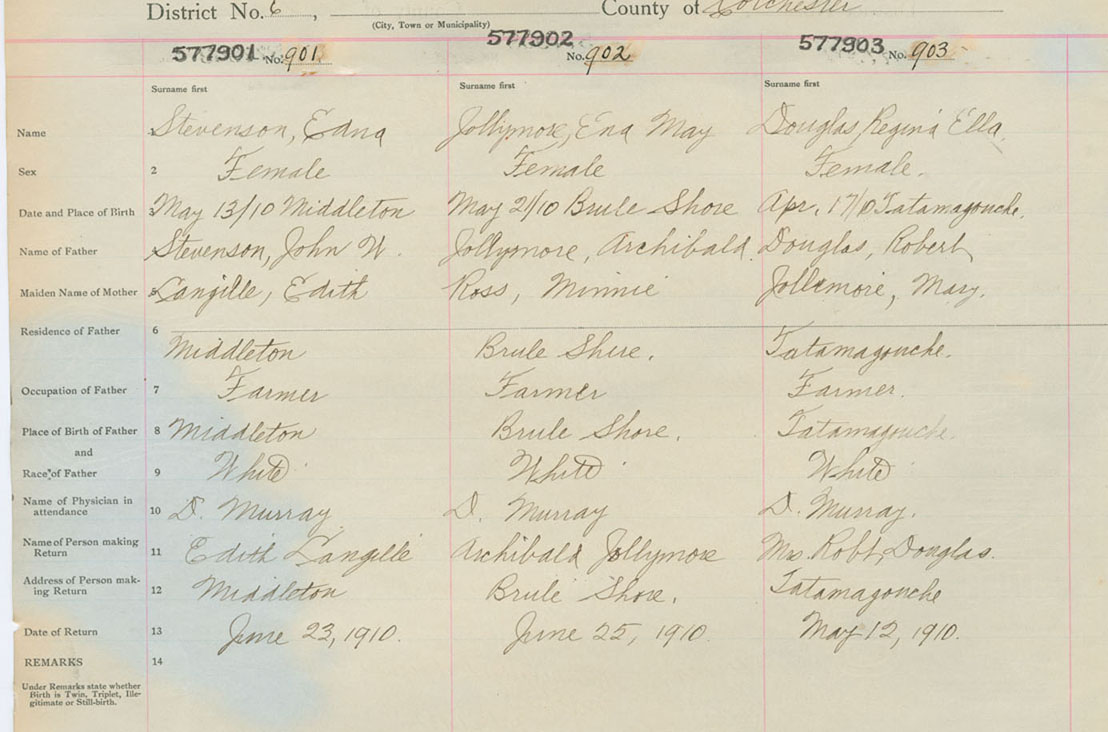 District No. 6 , County of Colchester
(City, Town or Municipality)
577901 No. 901 577902 No. 902 577903 No. 903
Surname first Surname first Surname first
Name 1 Stevenson, Edna Jollymore, Ena May Douglas, Regina Ella.
Sex 2 Female Female Female.
Date and Place of Birth 3 May 13/10 Middleton May 21/10 Brule Shore Apr. 17/10 Tatamagouche.
Name of Father 4 Stevenson, John W. Jollymore, Archibald. Douglas, Robert
Maiden Name of Mother 5 Langille, Edith Ross, Minnie Jollemore, Mary.
Residence of Father 6
Middleton Brule Shore. Tatamagouche.
Occupation of Father 7 Farmer Farmer Farmer.
Place of Birth of Father 8 Middleton Brule Shore. Tatamagouche.
and
Race of Father 9 White White White
Name of Physician in
attendance 10 D. Murray D. Murray D. Murray.
Name of Person making
Return 11 Edith Langille Archibald Jollymore Mrs. Robt. Douglas.
Address of Person mak-
ing Return 12 Middleton Brule Shore. Tatamagouche
Date of Return 13 June 23, 1910. June 25, 1910. May 12, 1910.
REMARKS 14
Under Remarks state whether
Birth is Twin, Triplet, Ille-
gitimate or Still-birth.